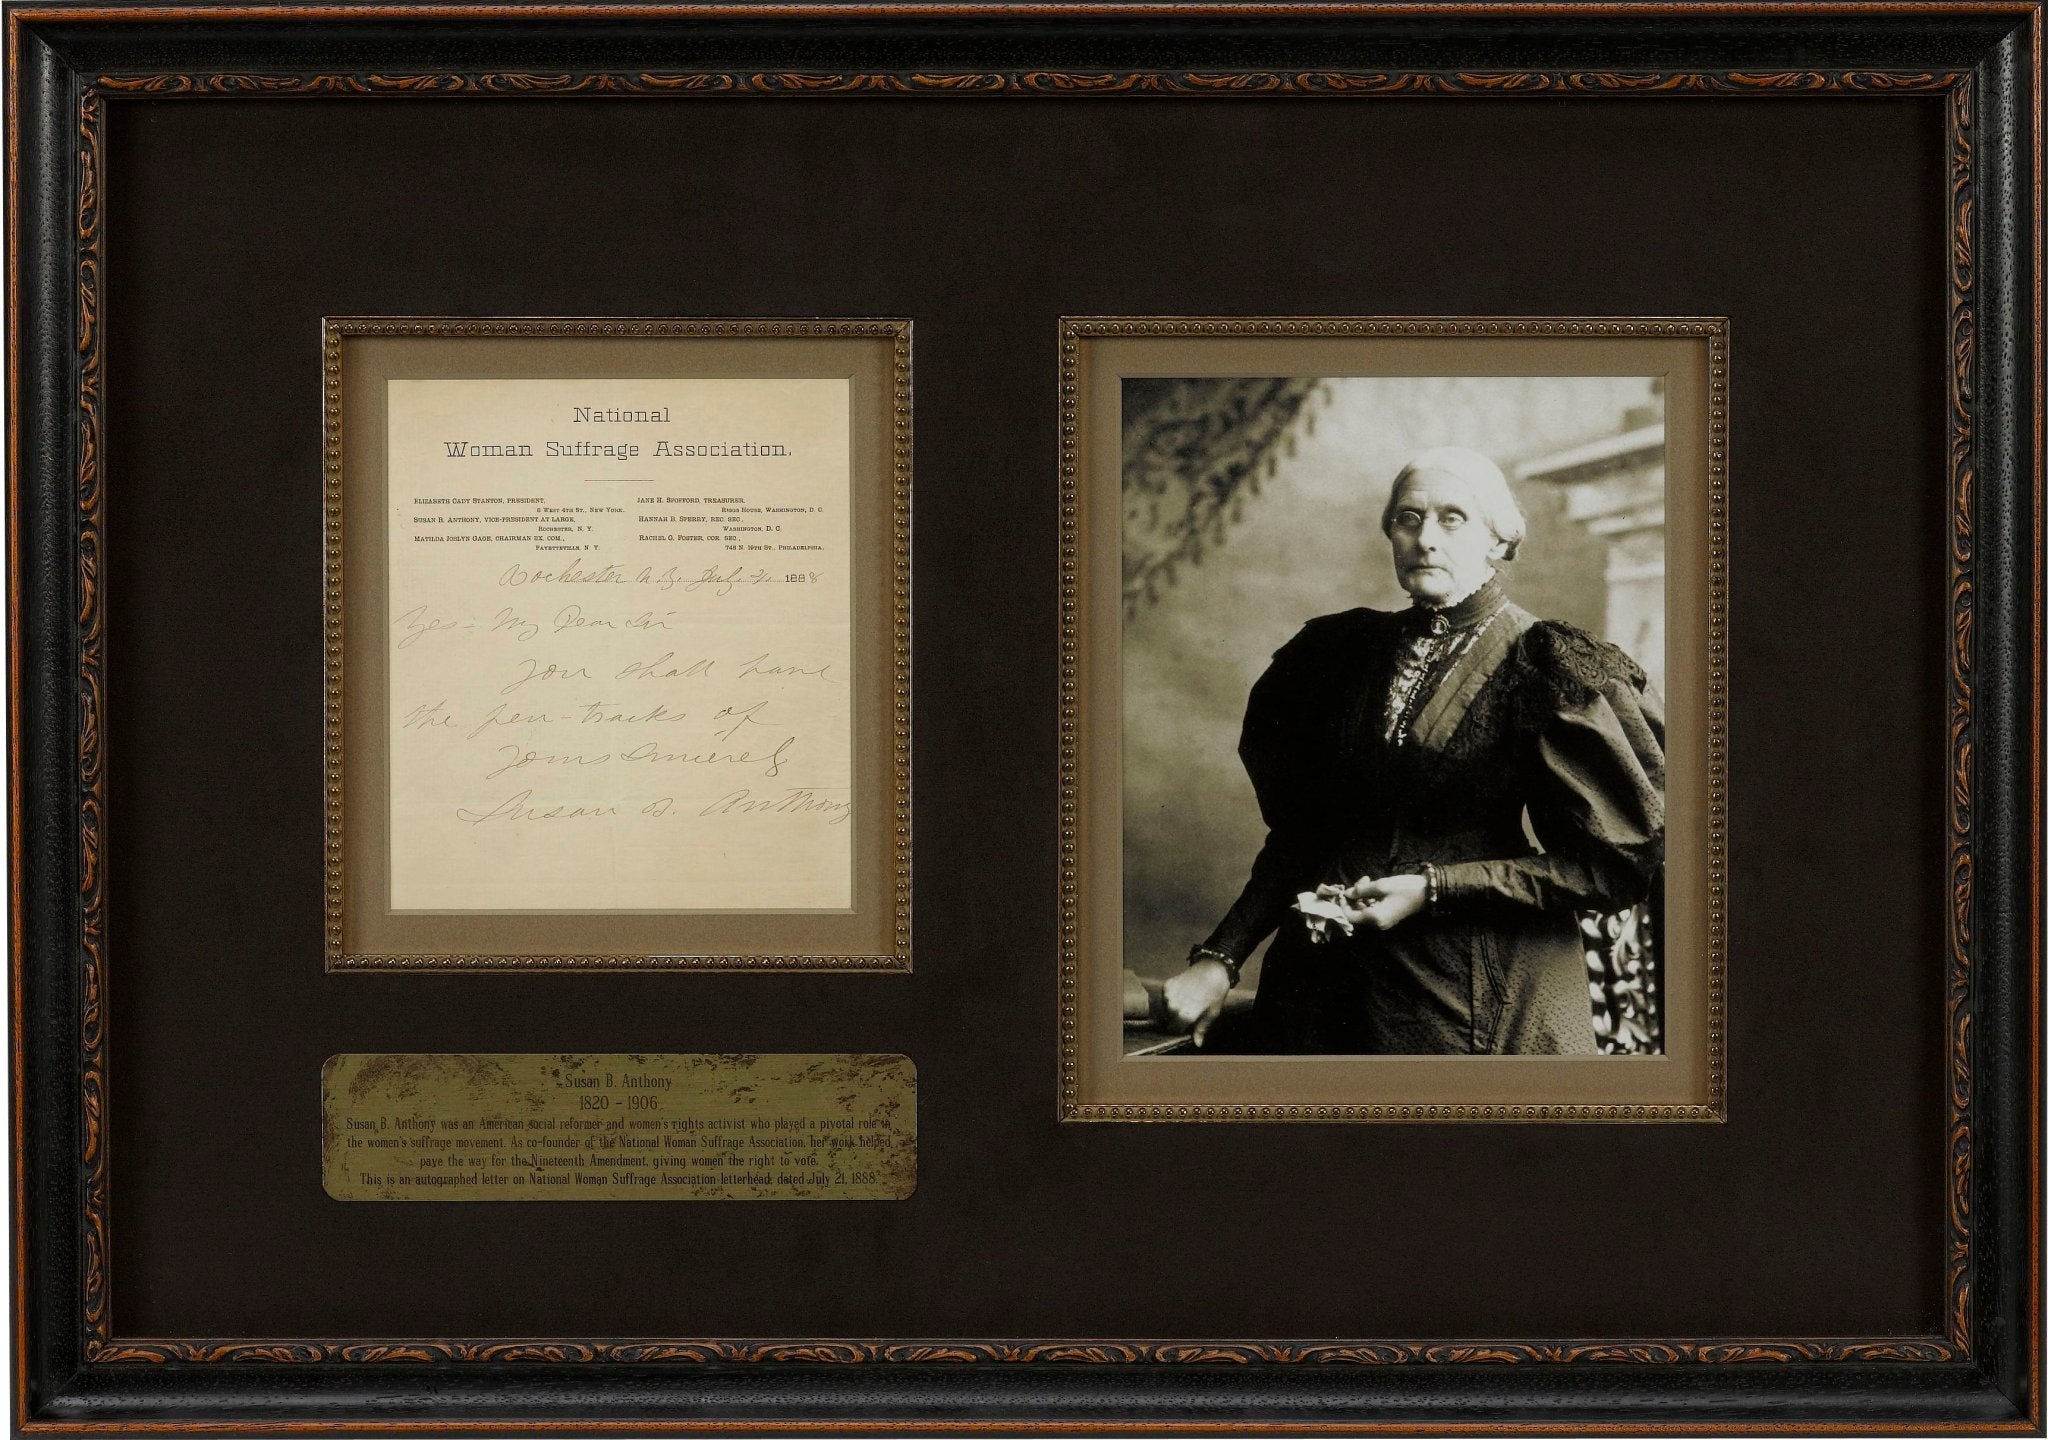 National
Woman Suffrage Association.
ELIZABETH CADY STANTON, PRESIDENT,
6 WEST 4TH ST., NEW YORK.
SUSAN B. ANTHONY, VICE-PRESIDENT AT LARGE,
ROCHESTER, N. Y.
MATILDA JOSLYN GAGE, CHAIRMAN EX. COM.,
FAYETTEVILLE, N. Y.
JANE H. SPOFFORD, TREASURER,
RIGGS HOUSE, WASHINGTON, D. C.
HANNAH B. SPERRY, REC. SEC.,
WASHINGTON, D. C.
RACHEL G. FOSTER, COR. SEC.,
748 N. 19TH ST., PHILADELPHIA.
Rochester N.Y. July 21. 1888
Yes - My Dear Sir
You shall have
the pen-tracks of
Yours Sincerely
Susan B. Anthony
Susan B. Anthony
1820 - 1906
Susan B. Anthony was an American social reformer and women's rights activist who played a pivotal role in
the women's suffrage movement. As co-founder of the National Woman Suffrage Association, her work helped
pave the way for the Nineteenth Amendment, giving women the right to vote.
This is an autographed letter on National Woman Suffrage Association letterhead, dated July 21, 1888.